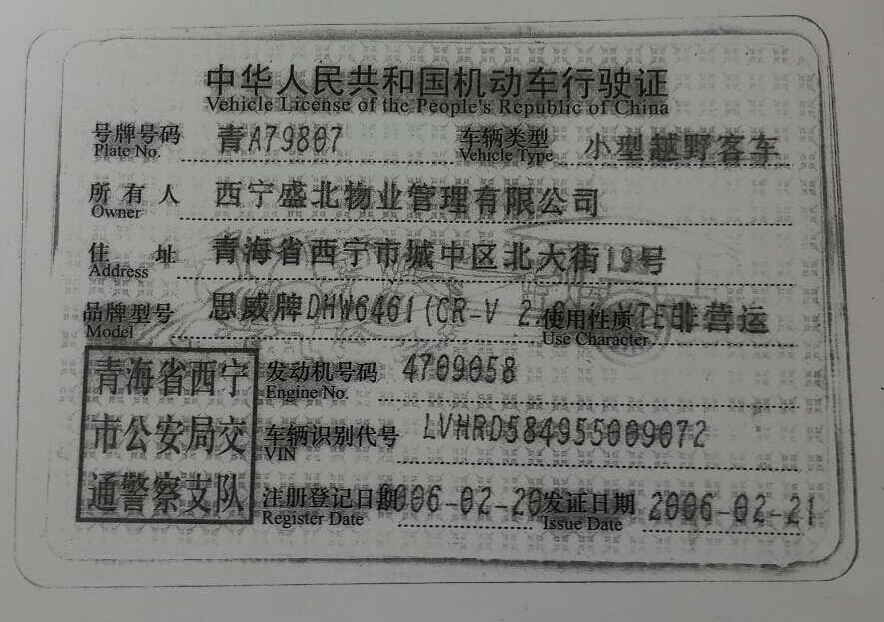 中华人民共和国机动车行驶证
Vehicle License of the People's Republic of China
号牌号码 青A79807 车辆类型 小型越野客车
Plate No. Vehicle Type
所有人 西宁盛北物业管理有限公司
Owner
住址 青海省西宁市城中区北大街19号
Address
品牌型号 思威牌DHW6461(CR-V 2. 使用性质 非营运
Model Use Character
青海省西宁 发动机号码 4709058
Engine No.
市公安局交 车辆识别代号 LVHRD584955009072
VIN
通警察支队 注册登记日期 2006-02-20 发证日期 2006-02-21
Register Date Issue Date